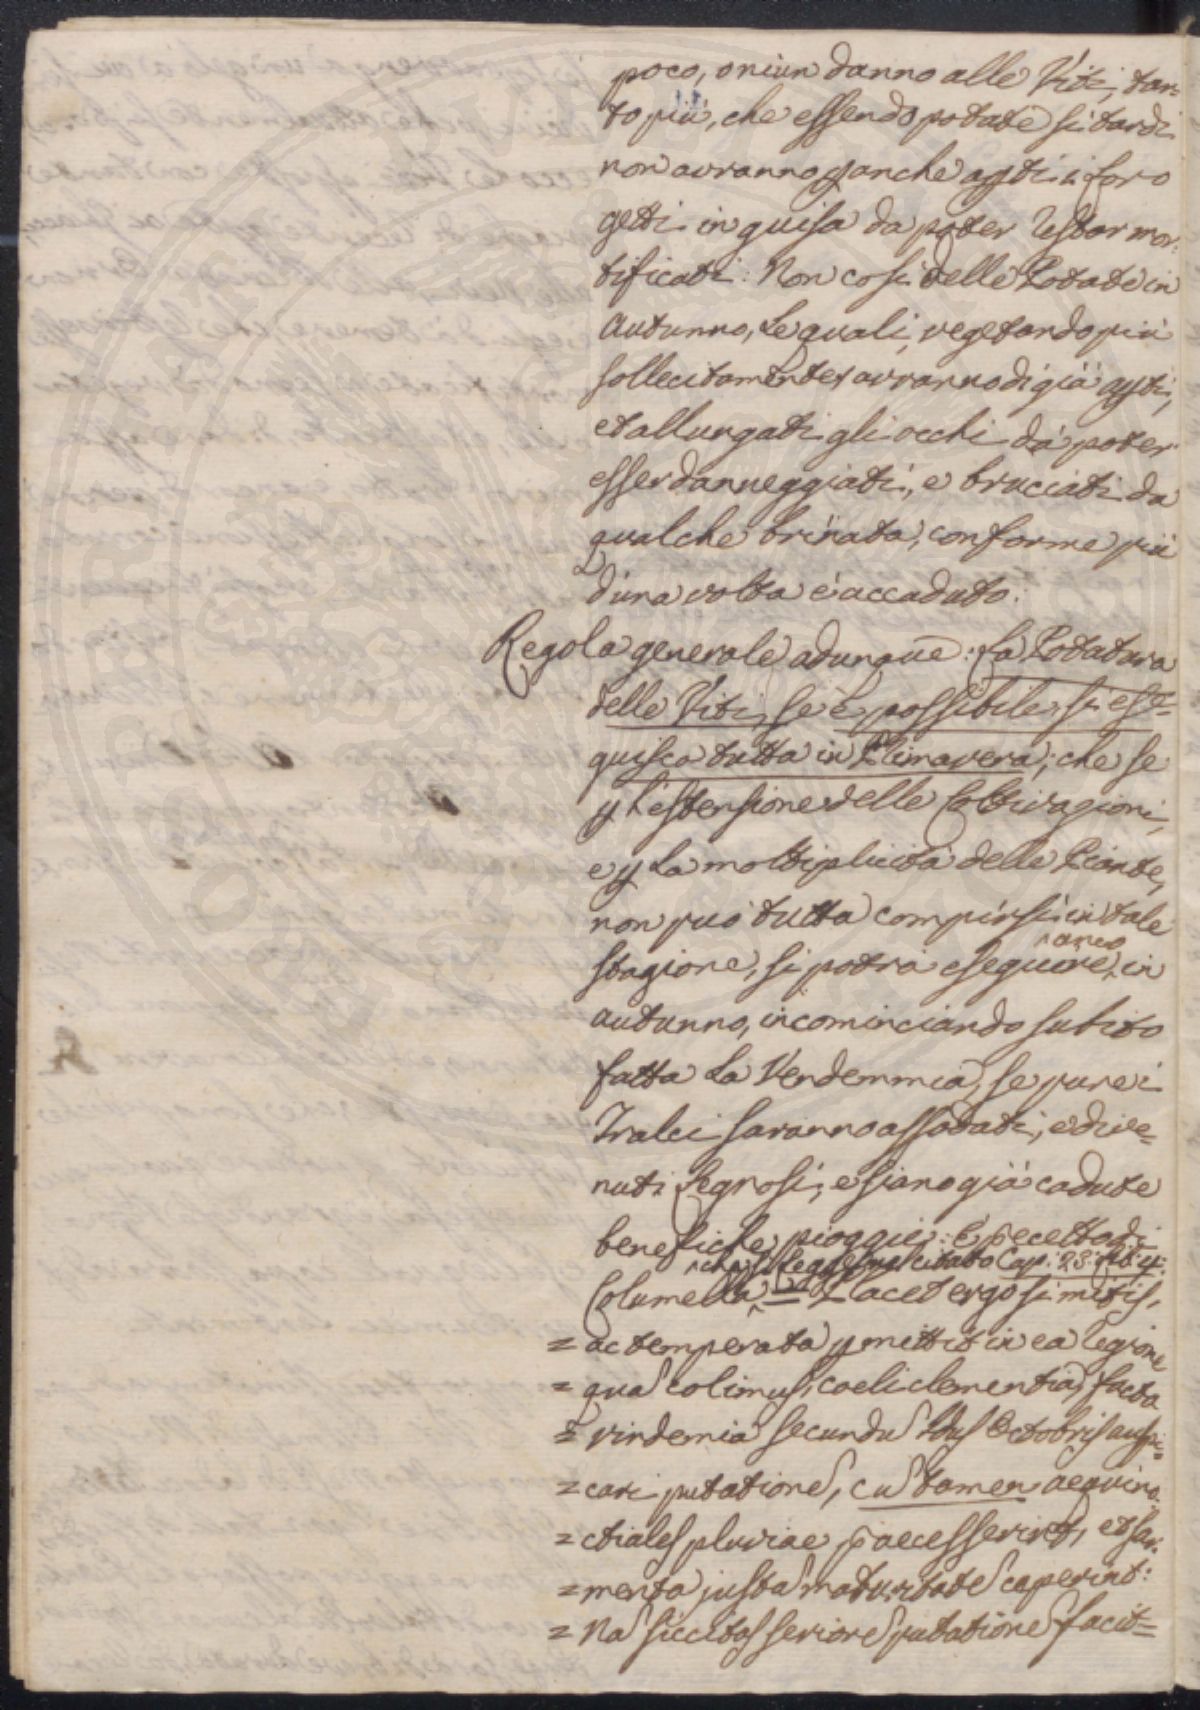 poco, o niun danno alle Viti, tan=
to più, che essendo potate si tardi
non avranno p anche apti i loro
getti in guisa da poter restar mor:
tificati: Non così delle Potate in
Autunno, Le quali, vegetando più
sollecitamente, avranno di già apti,
et allungati gli occhi da poter
esser danneggiati, e bruciati da
qualche brinata, conforme più
d'una volta è accaduto.
Regola generale adunque: La Potatura
delle Viti, se è possibile si ese=
guisca tutta in Primavera; che se
p L'estensione delle Coltivazioni,
e p La moltiplicità delle Piante,
non può tutta compirsi in tale
stagione, si potrà eseguire, anco in
autunno, incominciando subito
fatta La Vendemmia, se pure i
Tralci saranno assodati, e dive=
nuti Legnosi, e siano già cadute
benefiche pioggie: È pcetto di
Cap: 23: Lib: 4:
Columella = Placet ergo si mitis,
= ac temperata pmittit in ea regione
= qua colimus, coeli clementia, facta
= vindemia secundu Idus Octobris auspi=
= cari putatione, cu tamen aequino
= ctiales pluviae paecesserint, et sar:
= menta justa maturitate caperint:
= Na siccitas seriore putatione facit=